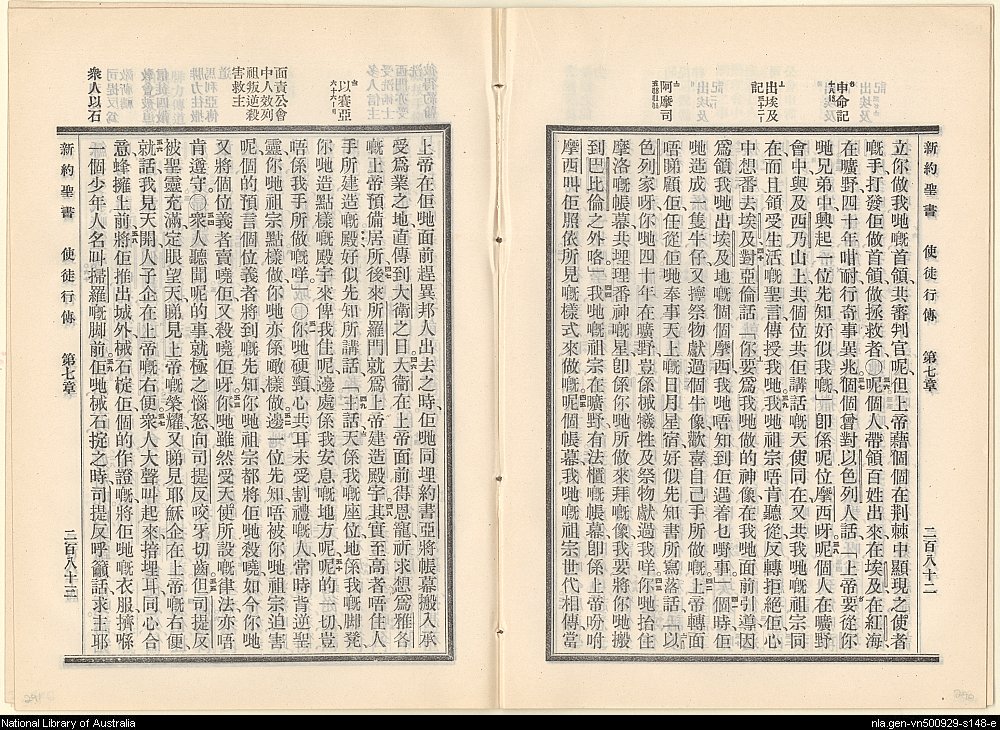 新約聖書 使徒行傳 第七章 二百八十二
立你做我哋嘅首領、共審判官呢、但上帝藉個個在荆棘中顯現之使者
嘅手、打發佢做首領、做拯救者、呢個人帶領百姓出來、在埃及、在紅海、
在曠野、四十年咁耐、行奇事異兆、個個曾對以色列人話、上帝要從你
哋兄弟中、興起一位先知好似我嘅、卽係呢位摩西呀、呢個人在曠野
會中、與及西乃山上、共個位共佢講話嘅天使同在、又共我哋嘅祖宗同
在、而且領受生活嘅聖言、傳授我哋、我哋祖宗唔肯聽從、反轉拒絕佢、心
中想番去埃及、對亞倫話、你要爲我哋做的神像、在我哋面前引導、因
爲領我哋出埃及地嘅個個摩西、我哋唔知到佢遇着乜嘢事、個時佢
哋造成一隻牛仔、又擰祭物獻過個牛像、歡喜自己手所做嘅、上帝轉面
唔睇顧佢、任從佢哋奉事天上嘅日月星宿、好似先知書所寫落話、以
色列家呀、你哋四十年在曠野、豈係械犧牲及祭物獻過我咩、你哋抬住
摩洛嘅帳幕、共埋理番神嘅星、卽係你哋所做來拜嘅像、我要將你哋搬
到巴比倫之外咯、我哋嘅祖宗在曠野、有法櫃嘅帳幕、卽係上帝吩咐
摩西、叫佢照依所見嘅樣式來做嘅、呢個帳幕、我哋嘅祖宗世代相傳、當
申命記
出埃及記
阿摩司
新約聖書 使徒行傳 第七章 二百八十三
上帝在佢哋面前趕異邦人出去之時、佢哋同埋約書亞、將帳幕搬入承
受爲業之地、直傳到大衞之日、大衞在上帝面前得恩寵、祈求想爲雅各
嘅上帝預備居所、後來所羅門就爲上帝建造殿宇、其實至高者唔住人
手所建造嘅殿、好似先知所講話、主話、天係我嘅座位、地係我嘅脚凳、
你哋造點樣嘅殿宇來俾我住呢、邊處係我安息嘅地方呢、呢的一切、豈
唔係我手所做嘅咩、你哋硬頸、心共耳未受割禮嘅人、常時背逆聖
靈、你哋祖宗點樣做、你哋亦係噉樣做、邊一位先知唔被你哋祖宗迫害
呢、個的預言個位義者將到嘅先知、你哋祖宗都將佢哋殺曉、如今你哋
又將個位義者賣曉佢、又殺曉佢呀、你哋雖然受天使所設嘅律法、亦唔
肯遵守、衆人聽聞呢的事、就極之惱怒、向司提反咬牙切齒、但司提反
被聖靈充滿、定眼望天、睇見上帝嘅榮耀、又睇見耶穌企在上帝嘅右便、
就話、我見天開、人子企在上帝嘅右便、衆人大聲叫起來、揞埋耳、同心合
意、蜂擁上前、將佢推出城外、械石掟佢、個的作證嘅、將佢哋嘅衣服、擠喺
一個少年人名叫掃羅嘅脚前、佢哋械石掟之時、司提反呼籲話、求主耶
以賽亞
面責公會中人效列祖叛逆殺害救主
衆人以石
National Library of Australia
nla.gen-vn500929-s148-e